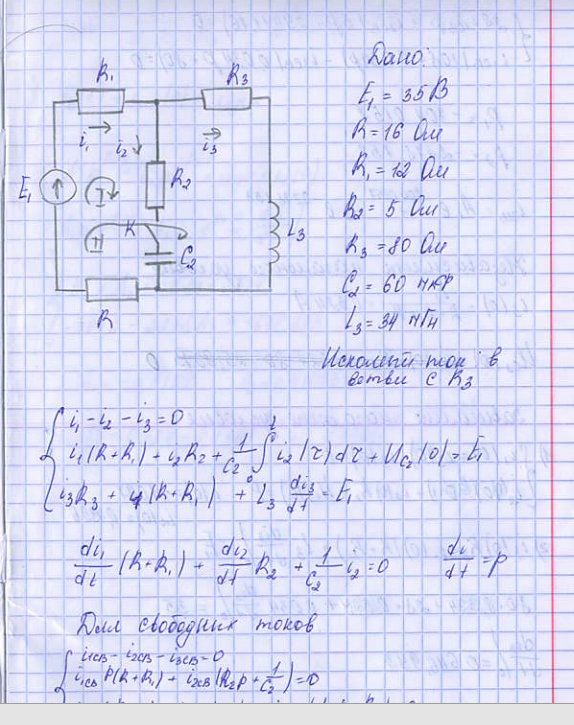 R₁
R₃
i₁
i₂
i₃
E₁
I
R₂
K
II
C₂
L₃
R
Дано:
E₁ = 35 В
R = 16 Ом
R₁ = 12 Ом
R₂ = 5 Ом
R₃ = 80 Ом
C₂ = 60 мкФ
L₃ = 34 мГн
Искомый ток в
ветви с R₃
i₁ - i₂ - i₃ = 0
i₁(R+R₁) + i₂R₂ + 1/C₂ ∫₀ᵗ i₂(τ)dτ + U_C₂(0) = E₁
i₃R₃ + i₁(R+R₁) + L₃ di₃/dt = E₁
di₁/dt (R+R₁) + di₂/dt R₂ + 1/C₂ i₂ = 0 di/dt = p
Для свободных токов
i₁св - i₂св - i₃св = 0
i₁св p(R+R₁) + i₂св(R₂p + 1/C₂) = 0